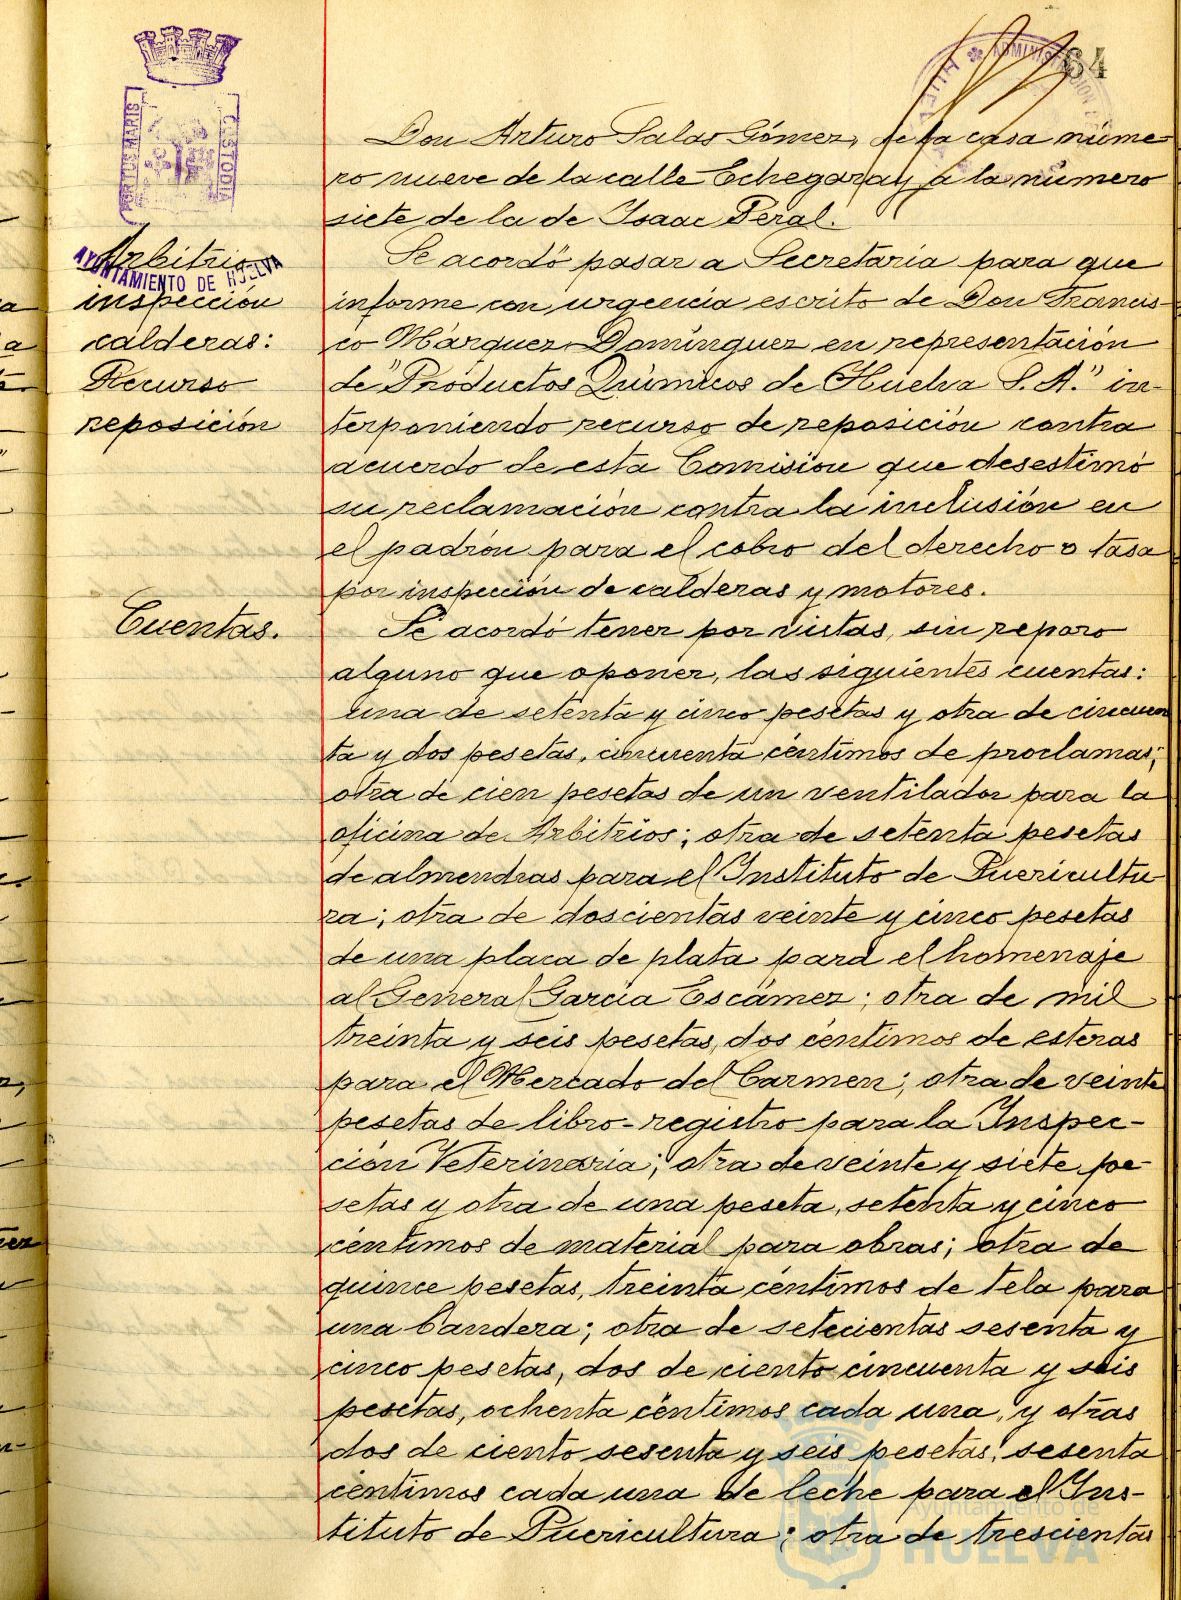 64
ADMINISTRACION
PORTUS MARIS
CUSTODI
AYUNTAMIENTO DE HUELVA
Don Arturo Salas Gómez, de la casa núme-
ro nueve de la calle Echegaray a la número
siete de la de Isaac Peral.
Arbitrio
inspección
calderas:
Recurso
reposición
Se acordó pasar a Secretaría para que
informe con urgencia escrito de Don Francis-
co Márquez Domínguez en representación
de "Productos Químicos de Huelva S. A." in-
terponiendo recurso de reposición contra
acuerdo de esta Comisión que desestimó
su reclamación contra la inclusión en
el padrón para el cobro del derecho o tasa
por inspección de calderas y motores.
Cuentas.
Se acordó tener por vistas, sin reparo
alguno que oponer, las siguientes cuentas:
una de setenta y cinco pesetas y otra de cincuen
ta y dos pesetas, cincuenta céntimos de proclamas;
otra de cien pesetas de un ventilador para la
oficina de Arbitrios; otra de setenta pesetas
de almendras para el Instituto de Puericultu
ra; otra de doscientas veinte y cinco pesetas
de una placa de plata para el homenaje
al General García Escámez; otra de mil
treinta y seis pesetas, dos céntimos de esteras
para el Mercado del Carmen; otra de veinte
pesetas de libro-registro para la Inspec-
ción Veterinaria; otra de veinte y siete pe-
setas y otra de una peseta, setenta y cinco
céntimos de material para obras; otra de
quince pesetas, treinta céntimos de tela para
una bandera; otra de setecientas sesenta y
cinco pesetas, dos de ciento cincuenta y seis
pesetas, ochenta céntimos cada una, y otras
dos de ciento sesenta y seis pesetas, sesenta
céntimos cada una de leche para el Ins-
tituto de Puericultura; otra de trescientas
Ayuntamiento de
HUELVA